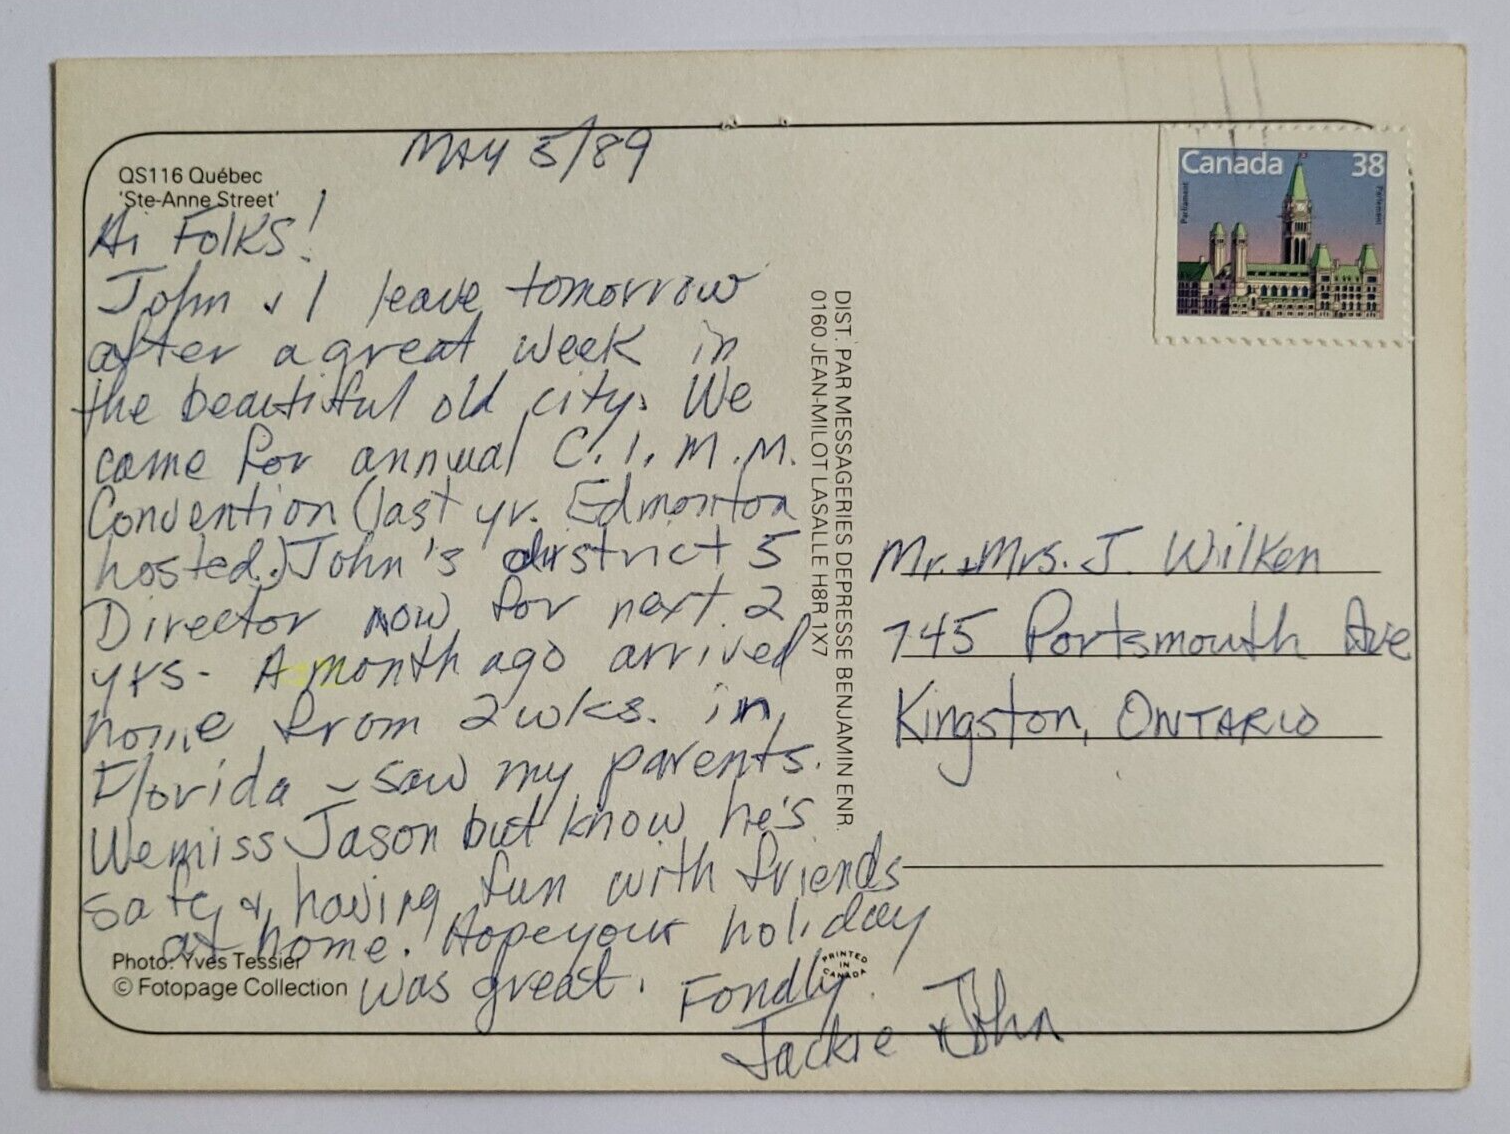 MAY 5/89
QS116 Québec
'Ste-Anne Street'
Hi Folks!
John & I leave tomorrow
after a great week in
the beautiful old city. We
came for annual C.I.M.M.
Convention (last yr. Edmonton
hosted.) John's district 5
Director now for next 2
yrs- A month ago arrived
home from 2 wks. in
Florida - saw my parents.
We miss Jason but know he's
safe & having fun with friends
at home. Hope your holiday
was great. Fondly,
Jackie & John
Photo: Yves Tessier
© Fotopage Collection
PRINTED
IN
CANADA
DIST. PAR MESSAGERIES DEPRESSE BENJAMIN ENR.
0160 JEAN-MILOT LASALLE H8R 1X7
Canada 38
Parliament
Parlement
Mr. & Mrs. J. Wilken
745 Portsmouth Ave
Kingston, ONTARIO